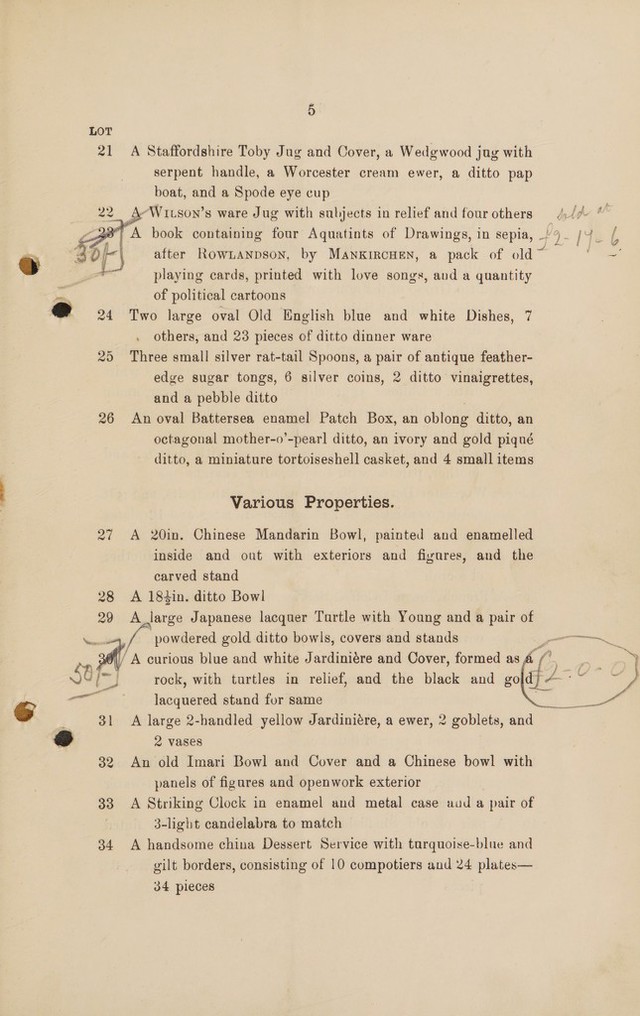 5
LOT
21 A Staffordshire Toby Jug and Cover, a Wedgwood jug with
serpent handle, a Worcester cream ewer, a ditto pap
boat, and a Spode eye cup
22 A WILSON'S ware Jug with subjects in relief and four others
23 A book containing four Aquatints of Drawings, in sepia,
30/- after ROWLANDSON, by MANKIRCHEN, a pack of old
playing cards, printed with love songs, and a quantity
of political cartoons
24 Two large oval Old English blue and white Dishes, 7
others, and 23 pieces of ditto dinner ware
25 Three small silver rat-tail Spoons, a pair of antique feather-
edge sugar tongs, 6 silver coins, 2 ditto vinaigrettes,
and a pebble ditto
26 An oval Battersea enamel Patch Box, an oblong ditto, an
octagonal mother-o'-pearl ditto, an ivory and gold piqué
ditto, a miniature tortoiseshell casket, and 4 small items
Various Properties.
27 A 20in. Chinese Mandarin Bowl, painted and enamelled
inside and out with exteriors and figures, and the
carved stand
28 A 18½in. ditto Bowl
29 A large Japanese lacquer Turtle with Young and a pair of
powdered gold ditto bowls, covers and stands
30 A curious blue and white Jardiniére and Cover, formed as a
50/- rock, with turtles in relief, and the black and gold
lacquered stand for same
31 A large 2-handled yellow Jardiniére, a ewer, 2 goblets, and
2 vases
32 An old Imari Bowl and Cover and a Chinese bowl with
panels of figures and openwork exterior
33 A Striking Clock in enamel and metal case and a pair of
3-light candelabra to match
34 A handsome china Dessert Service with turquoise-blue and
gilt borders, consisting of 10 compotiers and 24 plates—
34 pieces